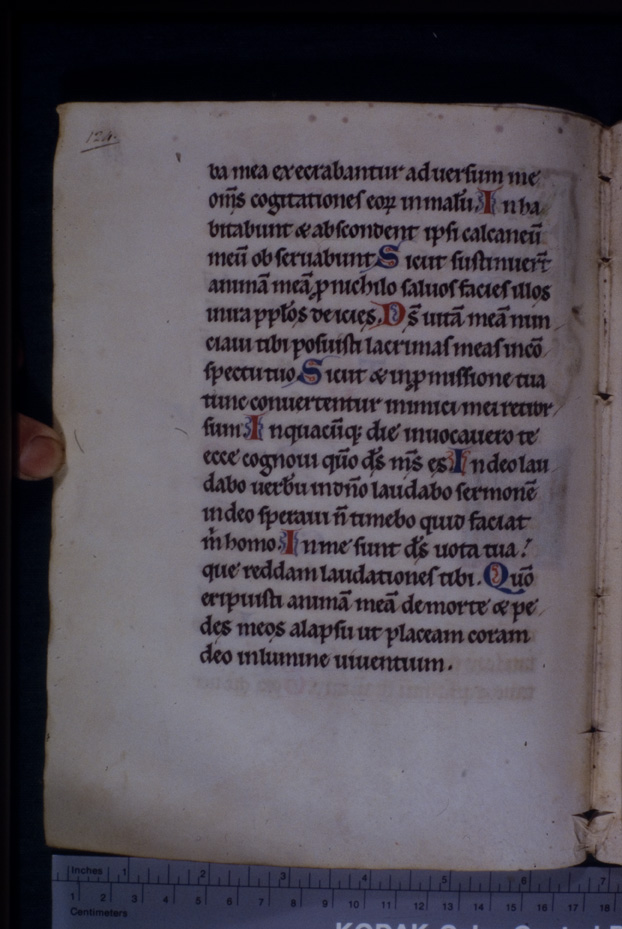 124.
ba mea execrabantur aduersum me
om̅s cogitationes eoꝝ in malū. In ha
bitabunt & abscondent ipsi calcaneū
meū obseruabunt Sicut sustinuer̅t
animā meā ꝓ nichilo saluos facies illos
in ira pp̅los deicies. Ds̅ uitā meā nun
ciaui tibi posuisti lacrimas meas in cō
spectu tuo. Sicut & in ꝓmissione tua
tunc conuertentur inimici mei retror
sum In quacūq; die inuocauero te
ecce cognoui qūo ds̅ ms̅ es In deo lau
dabo uerbū in dn̅o laudabo sermonē
in deo speraui n̅ timebo quid faciat
m̍ homo. In me sunt ds̅ uota tua!
que reddam laudationes tibi. Quō
eripuisti animā meā de morte & pe
des meos a lapsu ut placeam coram
deo in lumine uiuentium.
Inches 1 2 3 4 5 6 7
1 2 3 4 5 6 7 8 9 10 11 12 13 14 15 16 17 18
Centimeters